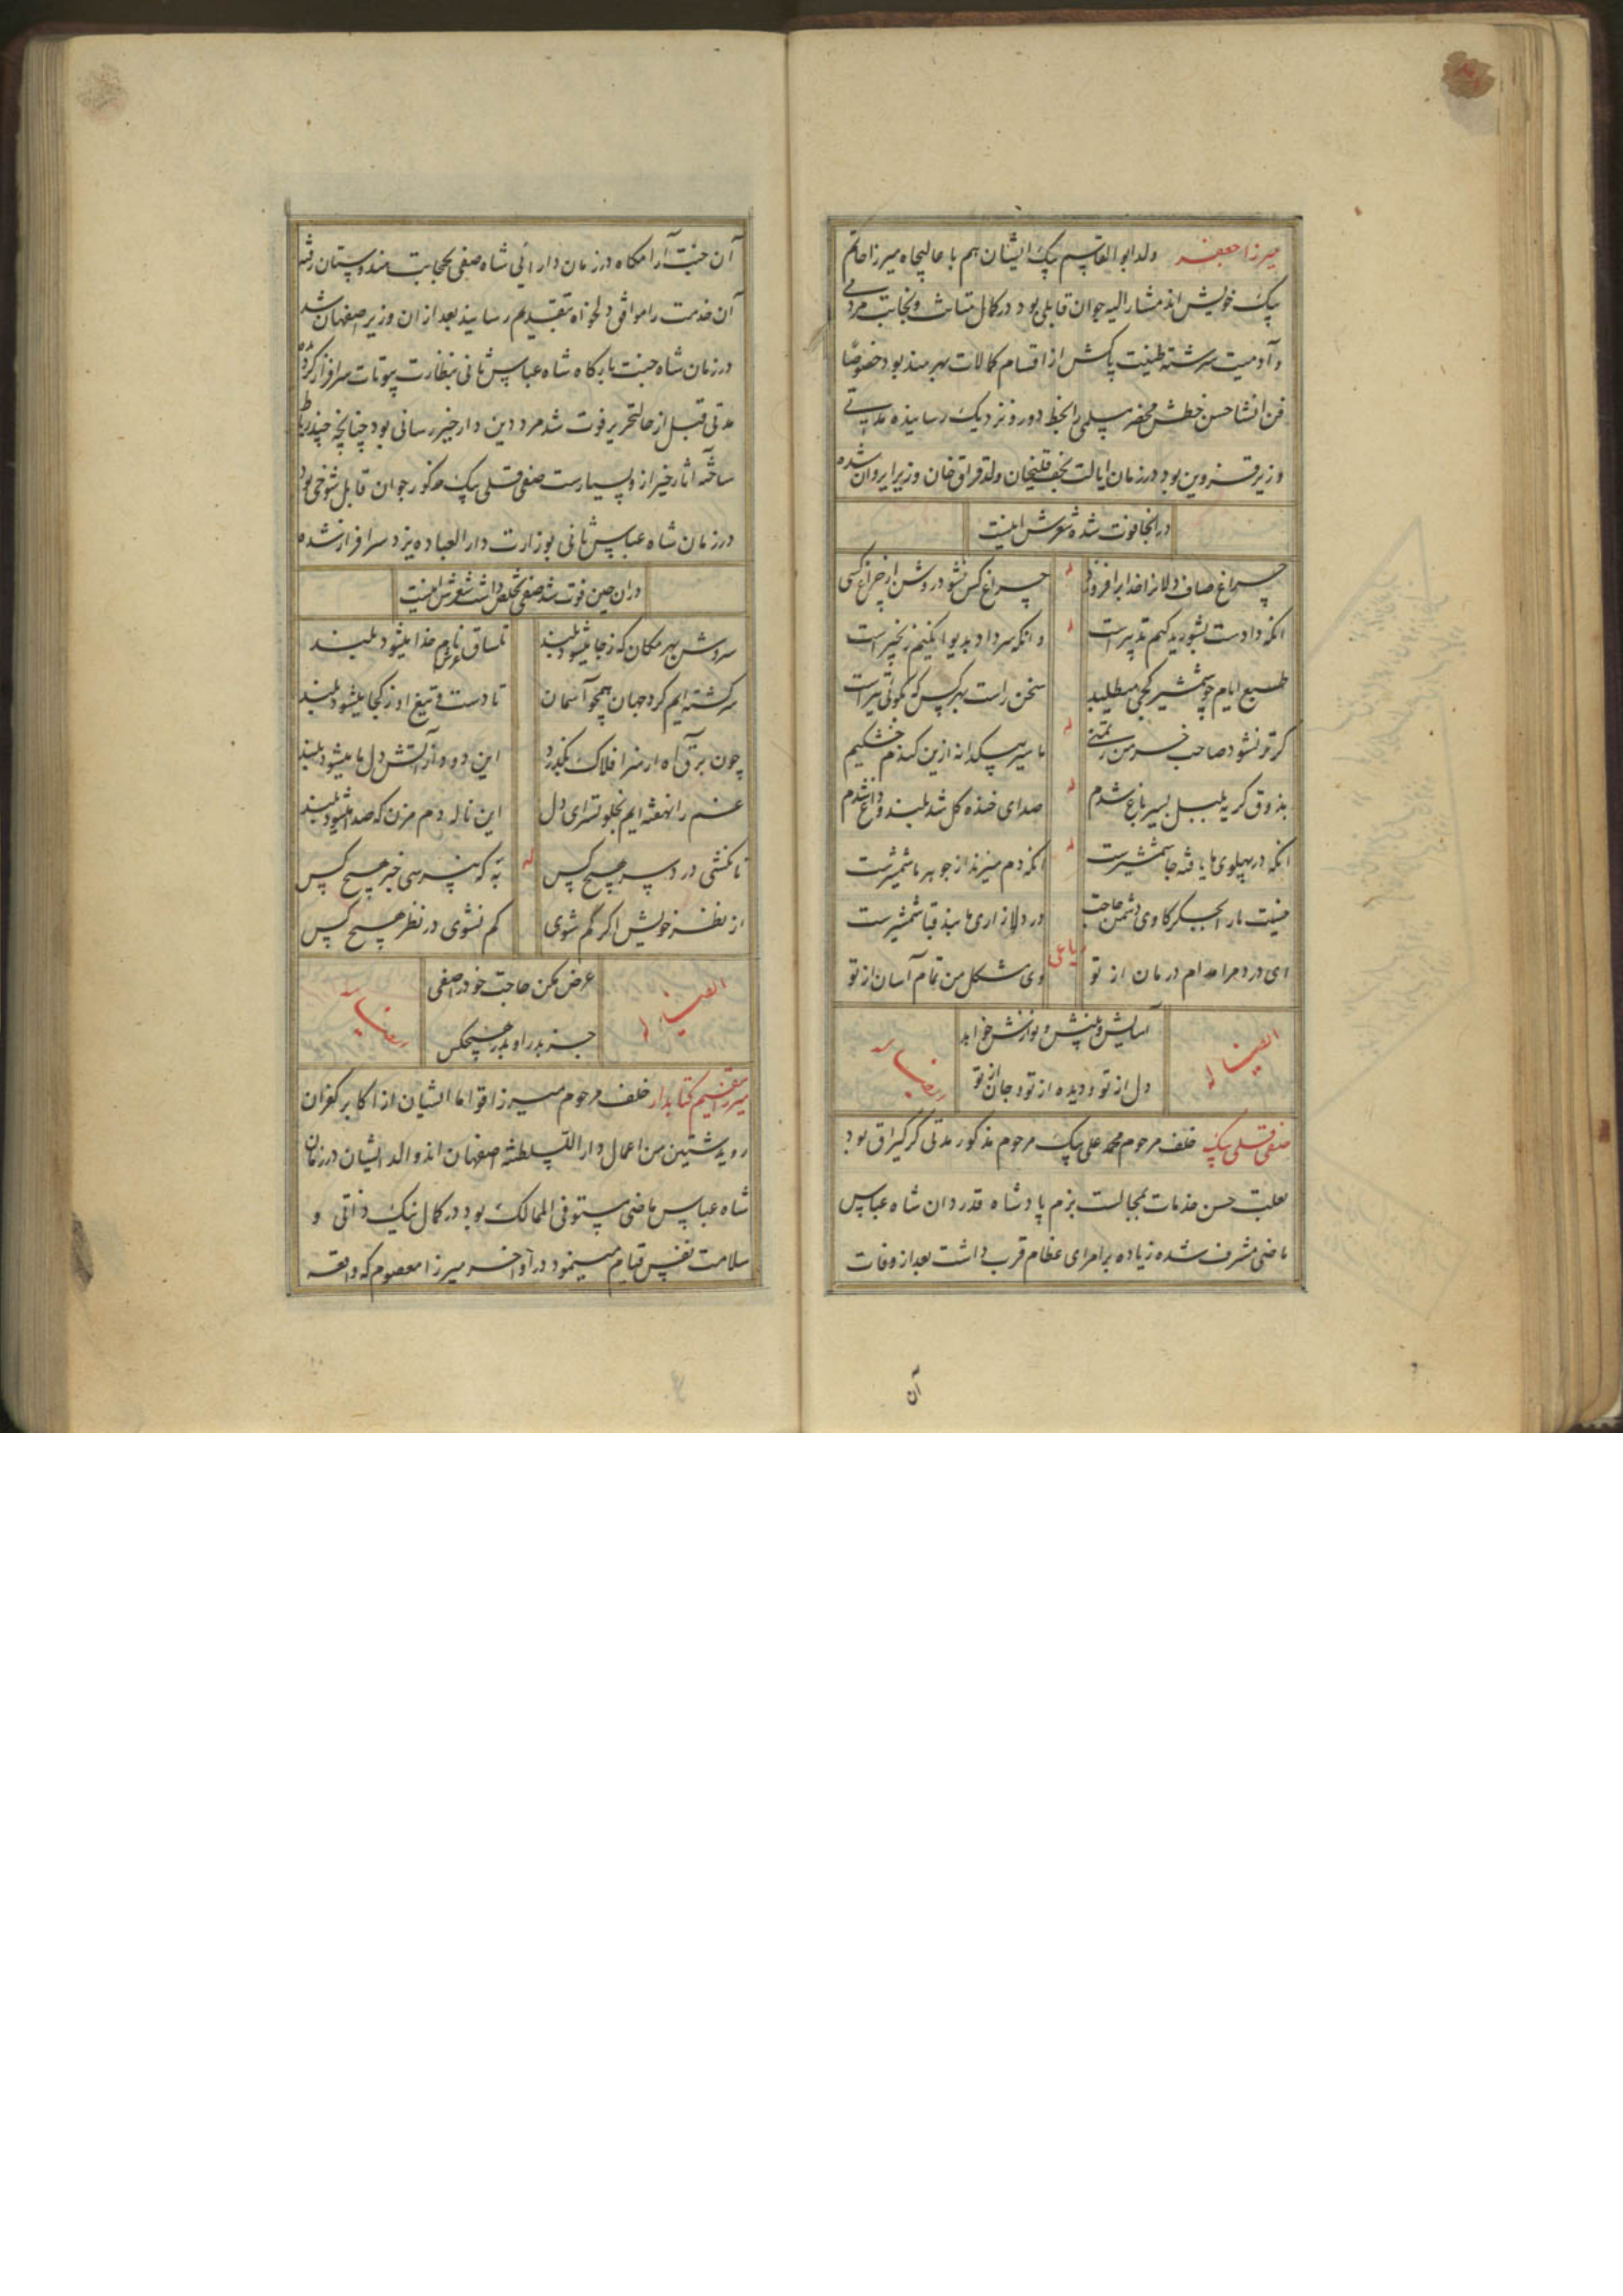 میرزا جعفر ولد ابوالقاسم بیک ایشان هم با عالیجاه میرزا حاتم
بیک خویش اند مشارالیه جوان قابلی بود در کمال متانت و نجابت مردمی
و آدمیت سرشته طینت پاکش از اقسام کمالات بهره مند بود خصوصا
فن انشا حسن خطش محضر سلمی را بخط دور و نزدیک رسانیده مدتی
وزیر قزوین بود در زمان ایالت نجفقلیخان ولد قزاق خان وزیر ایروان شده
در آنجا فوت شده شعرش اینست
چراغ صاف دلانرا خدا برافروزد
چراغ کس نشود روشن از چراغ کسی
له
آنکه دادست بشوریدگیم تدبیر است
و آنکه سر داد بدیوانگیم زنجیر است
له
طبع ایام چو شمشیر کجی میطلبد
سخن راست بهر کس که بگوئی تیر است
گر تو نشود صاحب خرمن رتمنی
ما سیر بیکدانه ازین گندم خشکیم
له
بذوق گریه بلبل بسیر باغ شدم
صدای خنده گل شد بلند و داغ شدم
له
آنکه در پهلوی ما یافته جا شمشیرست
آنکه دم میزند از جوهر ما شمشیرست
له
نیست ما را بجگر کاوی دشمن حاجت
در دلازاری ما بند قبا شمشیرست
رباعی
ای درد مرا مدام درمان از تو
وی مشکل من تمام آسان از تو
ایضا له
آسایش و بینش و نوازش خواهد
دل از تو و دیده از تو و جان از تو
رباعیه
صفی قلی بیک خلف مرحوم محمد علی بیک مرحوم مذکور مدتی کرکیراق بود
بعلت حسن خدمات بمجالست بزم پادشاه قدردان شاه عباس
ماضی مشرف شده زیاده بر امرای عظام قرب داشت بعد از وفات
آن
آن جنت آرامگاه در زمان دارائی شاه صفی بحجابت هندوستان رفته
آن خدمت را موافق دلخواه بتقدیم رسانید بعد از آن وزیر اصفهان شد
در زمان شاه جنت بارگاه شاه عباس ثانی بنظارت بیوتات سرافراز گردیده
مدتی قبل از حالتحریر فوت شد مرد دین دار خیر رسانی بود چنانچه چند رباط
ساخته آثار خیر از و بسیارست صفی قلی بیک مذکور جوان قابل شوخی بود
در زمان شاه عباس ثانی بوزارت دارالعباده یزد سرافراز شده
در آن حین فوت شد صفی تخلص داشت شعرش اینست
سروشن بهر مکان که ز جا میشود بلند
تا ساق عرش نام خدا میشود بلند
سرگشته ایم گرد جهان همچو آسمان
تا دست و تیغ او ز کجا میشود بلند
چون برق آه از سر افلاک بگذرد
این دود از آتش دل ما میشود بلند
غم را نهفته ایم بخلوتسرای دل
این ناله دم مزن که صدا میشود بلند
له
تا نکشی درد سر هیچ کس
به که نپرسی خبر هیچ کس
از نظر خویش اگر گم شوی
کم نشوی در نظر هیچ کس
ایضا له
عرض مکن حاجت خود را صفی
جز بدر او بدر هیچکس
رباعیه
میرزا مقیم کتابدار خلف مرحوم میرزا قواما ایشان از اکابر کفران
رویدشتین من اعمال دارالسلطنه اصفهان اند والد ایشان در زمان
شاه عباس ماضی مستوفی الممالک بود در کمال نیک ذاتی و
سلامت نفس قیام مینمود در آواخر میرزا معصوم که واقعه